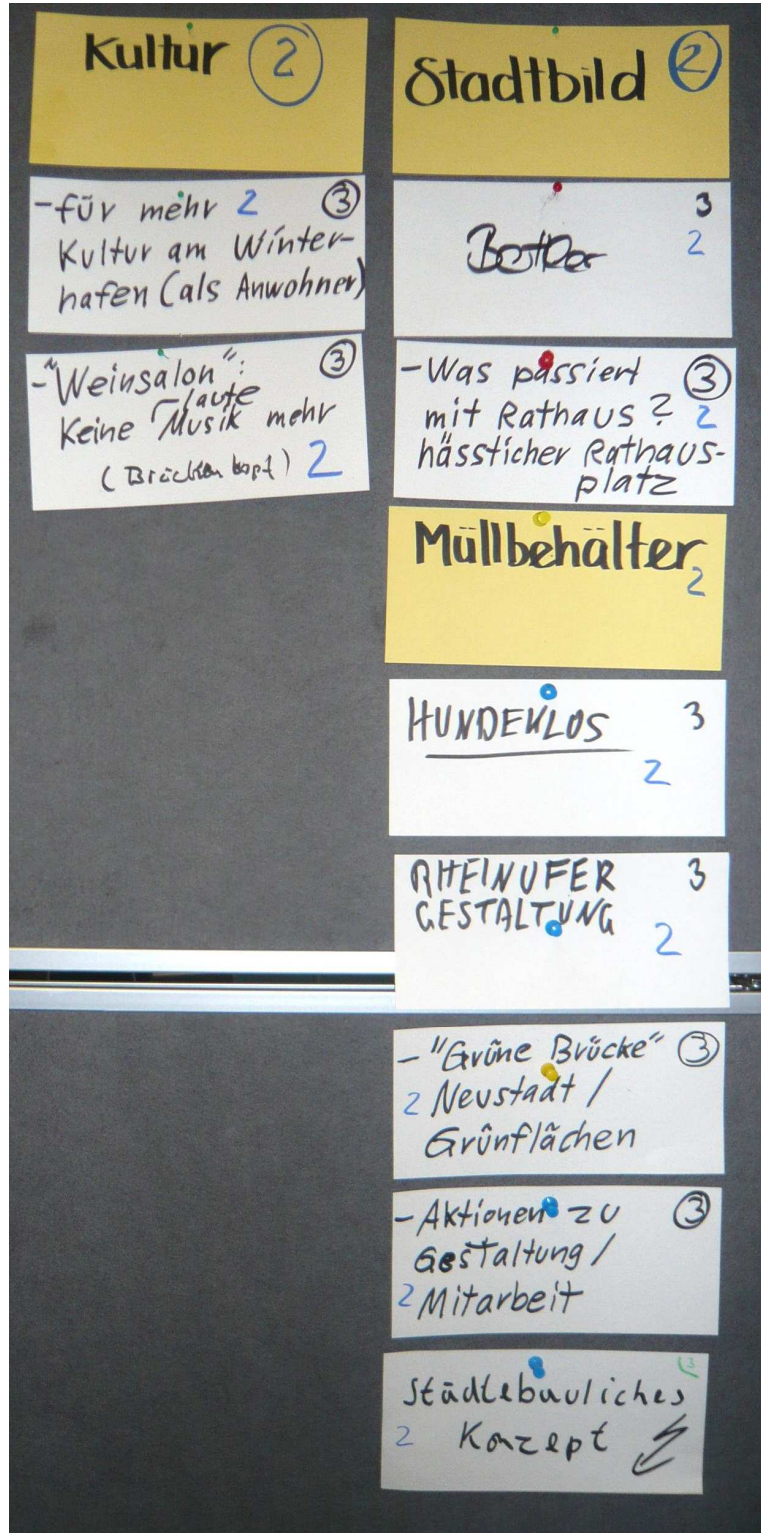 Kultur 2
- für mehr 2 3
Kultur am Winter-
hafen (als Anwohner)
- "Weinsalon": 3
laute
Keine Musik mehr
(Brückenkopf) 2
Stadtbild 2
3
Bettler
2
- Was passiert 3
mit Rathaus? 2
hässlicher Rathaus-
platz
Müllbehälter
2
HUNDEKLOS 3
2
RHEINUFER 3
GESTALTUNG
2
- "Grüne Brücke" 3
2 Neustadt /
Grünflächen
- Aktionen zu 3
Gestaltung /
2 Mitarbeit
3
Städtebauliches
2 Konzept